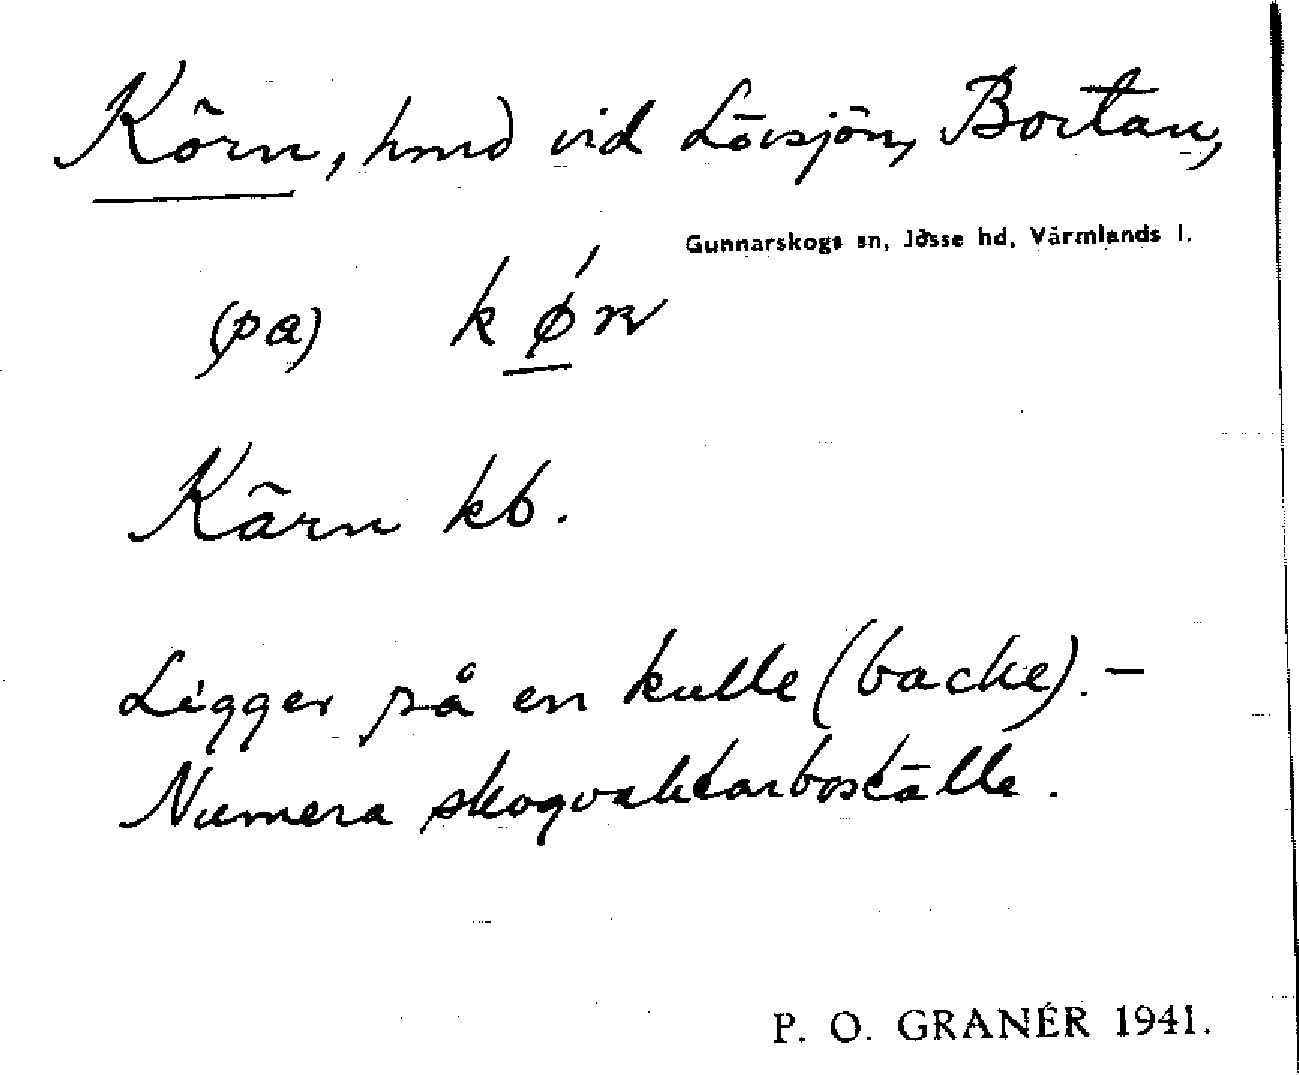 Körn, hmd vid Lövsjön, Bortan,
Gunnarskogs sn, Jösse hd, Värmlands l.
(pa) kǿrn
Kärn kb.
Ligger på en kulle (backe). –
Numera skogvaktarboställe.
P. O. GRANÉR 1941.